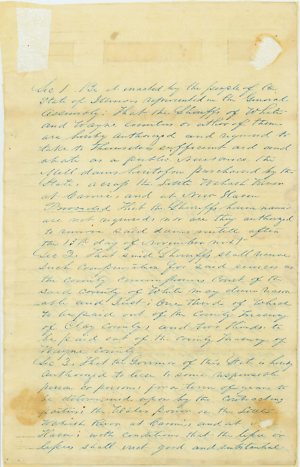 Sec 1. Be it enacted by the people of the
State of Illinois represented in the General
Assembly. That the Sheriffs of White
and Wayne counties or either of them
are hereby authorized and required to
take to themselves sufficient aid and
abate as a public nuisance the
Mill dams heretofore purchased by the
State across the Little Wabash River
at Carmi and at New Haven
Provided that the Sheriffs
are not required nor are they authorized
to remove said dams until after
the 15th day of November next
Sec 2. That said Sheriffs shall receive
such compensation for said services as
the County Commissioners Court of the
said County of White may deem reason
able and Just: One third of Which
to be paid out of the County Treasury
of Clay County, and two thirds to
be paid out of the County Treasury of
Wayne County
Sec 3. That the Governor of this State is hereby
Authorized to lease to some responsible
person or persons for a term of years to
be determined upon by the Contracting
parties the Water power on the Little
Wabash River at Carmi and at
Haven with conditions that the lessee or
lessees shall erect good and substantial